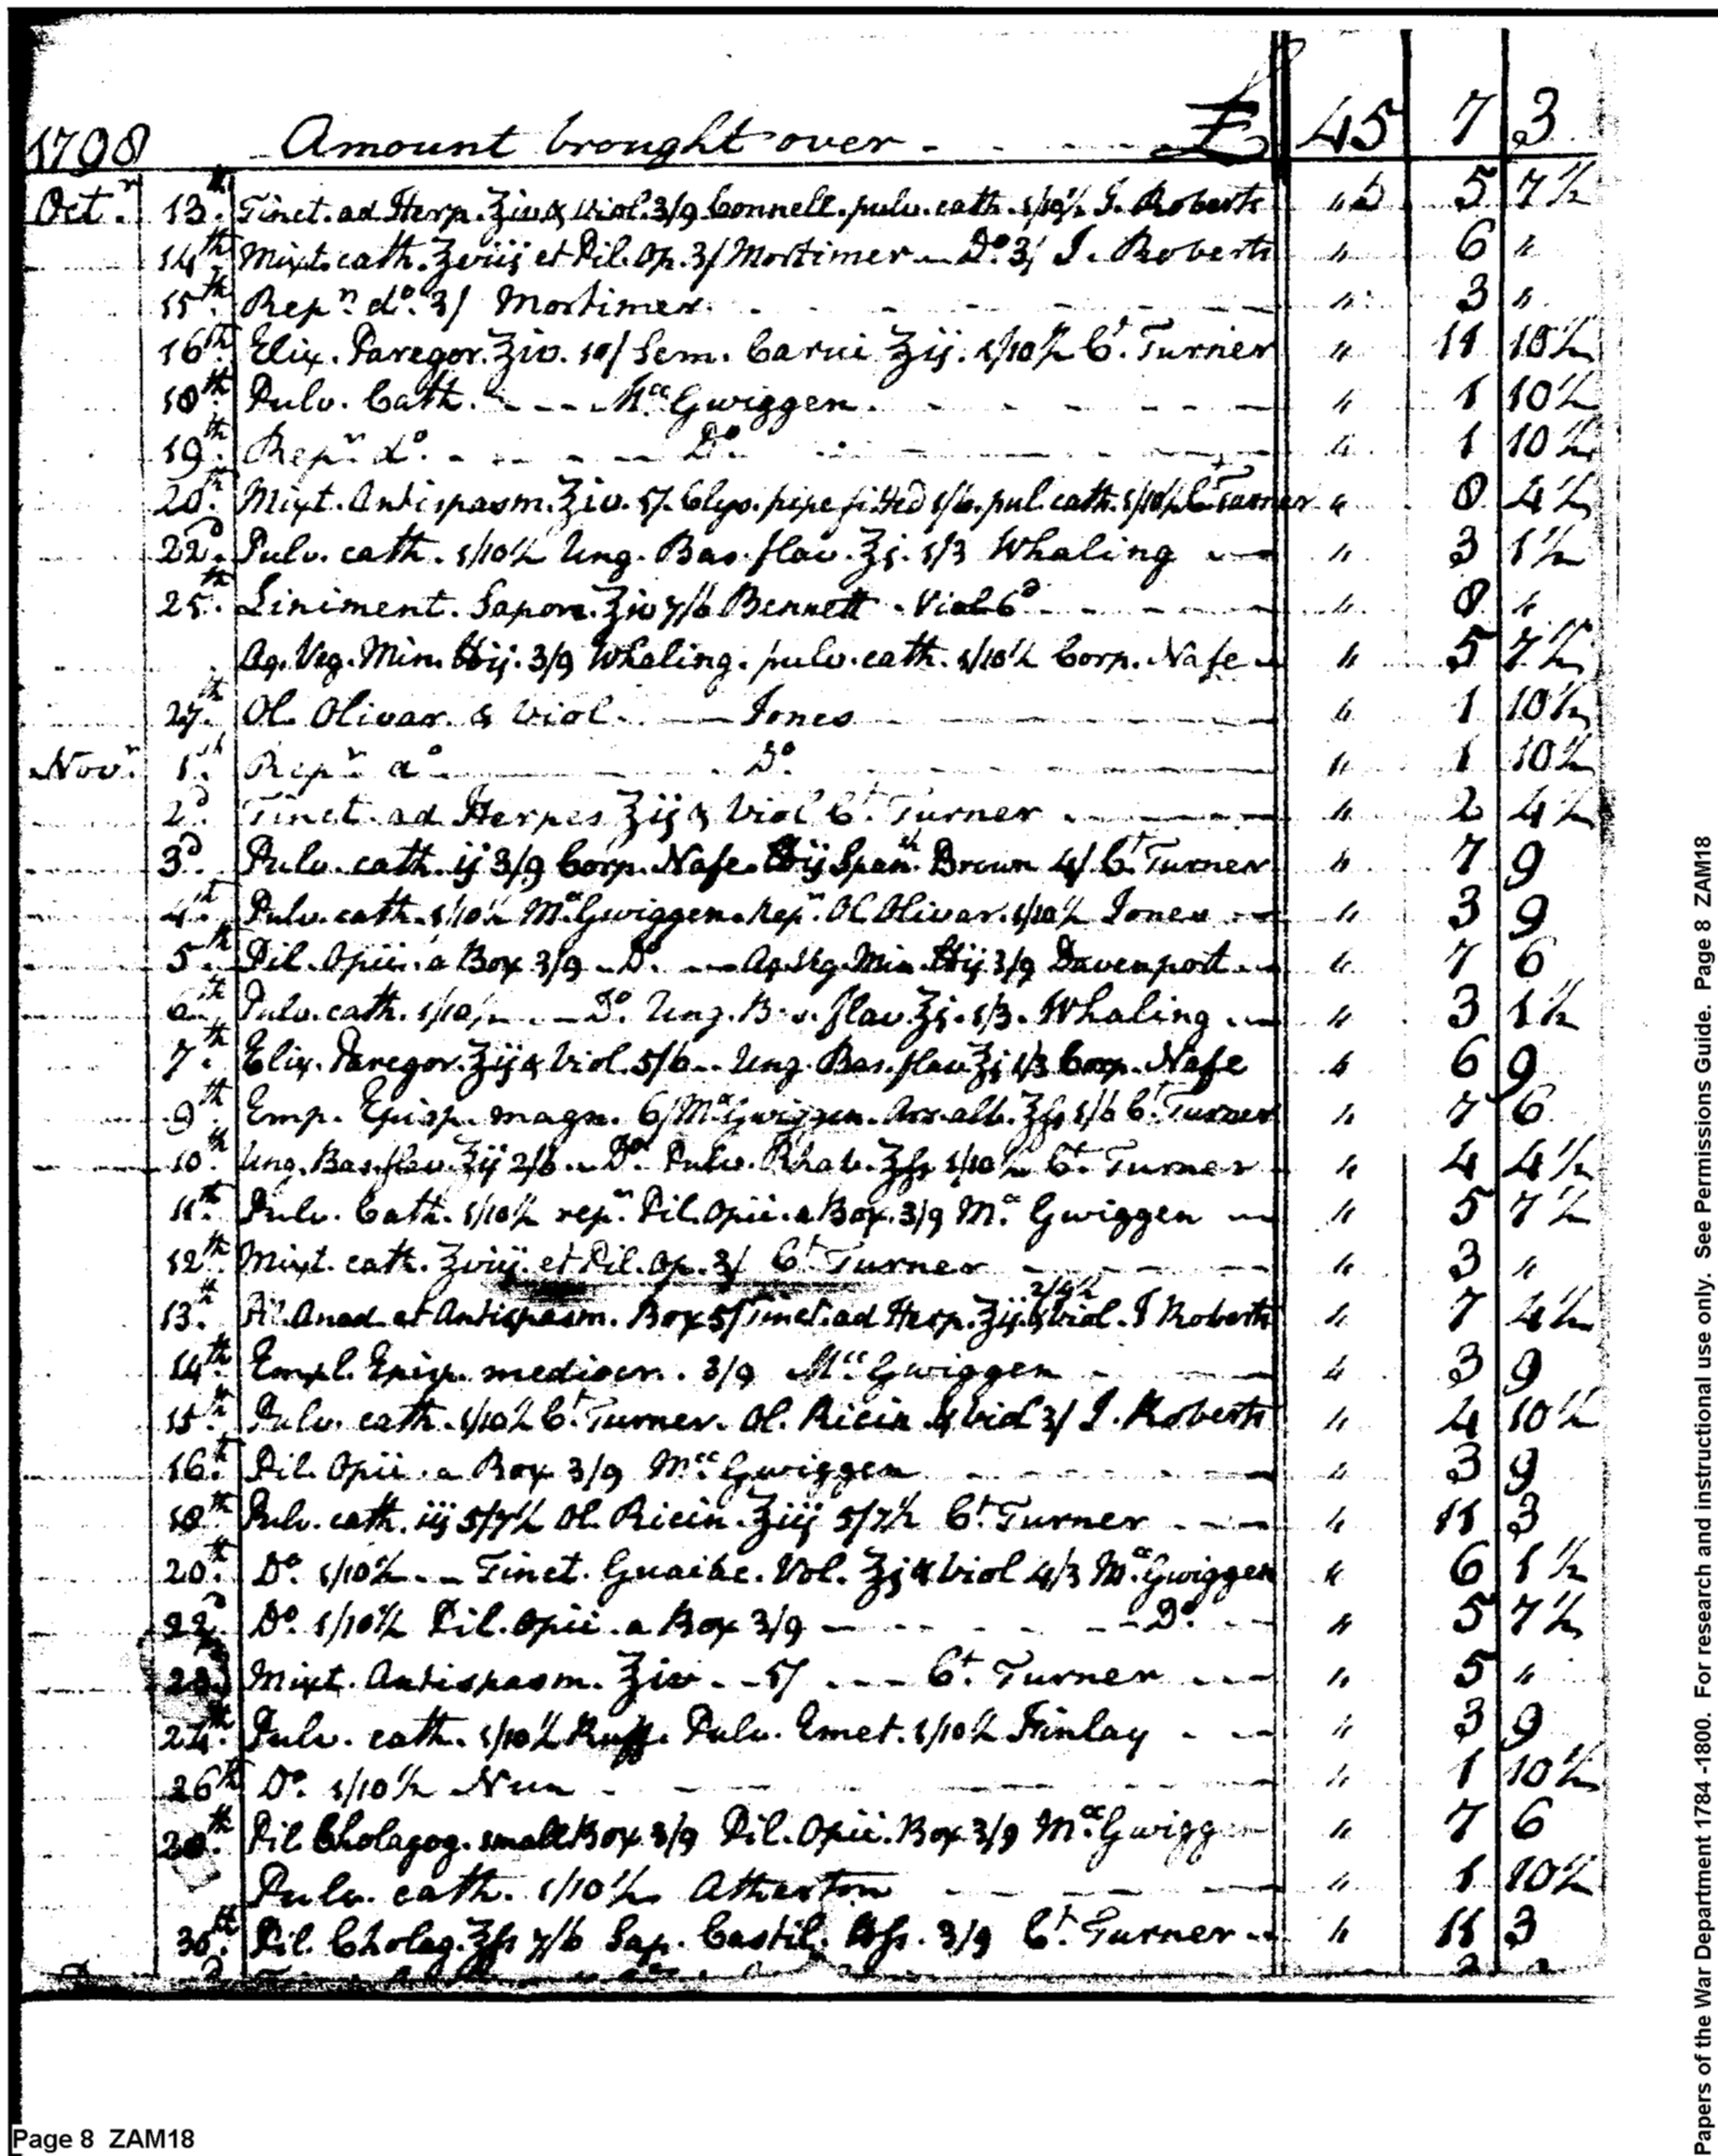 1798 Amount brought over - - - - £ 45 7 3
Octr. 13th. Tinct. ad Herp. ℥iv & Viol. 3/9 Connell. pulv. cath. 1/10½ J. Roberts " 5 7½
14th Mixt. cath. ℥viij et Pil. Op. 3/ Mortimer - Do. 3/ J. Roberts " 6 "
15th. Repn. do. 3/ Mortimer. " 3 "
16th. Elix. Paregor. ℥iv. 10/ Sem. Carui ℥ij. 1/10½ Ct. Turner " 11 10½
18th. Pulv. Cath. - - - Mcc Gwiggen. " 1 10½
19th. Repn. do. - - - - Do. " 1 10½
20th. Mixt. Antispasm. ℥iv. 5/. Clys. pipe fitted 1/6. pul. cath. 1/10½ Ct. Turner " 8 4½
22d. Pulv. cath. 1/10½ Ung. Bas. flav. ℥j. 1/3 Whaling " 3 1½
25th. Liniment. Sapon. ℥iv 7/6 Bennett - Viol 6d " 8 "
Aq. Veg. Min. ℔ij. 3/9 Whaling. pulv. cath. 1/10½ Corp. Nafe " 5 7½
27th. Ol. Olivar. & Viol. - Jones " 1 10½
Novr. 1st. Repn. do Do. " 1 10½
2d. Tinct. ad Herpes ℥ij & Viol Ct. Turner " 2 4½
3d. Pulv. cath. ij 3/9 Corp. Nafe. ℔ij Spanh. Brown 4/. Ct. Turner " 7 9
4th. Pulv. cath. 1/10½ Mc. Gwiggen. Repn. Ol. Olivar. 1/10½ Jones " 3 9
5th. Pil. Opii. a Box 3/9 - Do. - Aq. Veg. Min. ℔ij. 3/9 Davenport " 7 6
6th. Pulv. cath. 1/10½ - Do. Ung. Bas. flav. ℥j. 1/3. Whaling " 3 1½
7th. Elix. Paregor. ℥ij & Viol. 5/6 - Ung. Bas. flav. ℥j 1/3 Corp. Nafe " 6 9
9th. Emp. Episp. magn. 6/ Mc. Gwiggen. Ars. alb. ℥fs 1/6 Ct. Turner " 7 6
10th. Ung. Bas. flav. ℥ij 2/6 - Do. Pulv. Rhab. ℥fs 1/10½ Ct. Turner " 4 4½
11th. Pulv. Cath. 1/10½ repn. Pil. Opii. a Box. 3/9 Mc. Gwiggen " 5 7½
12th Mixt. cath. ℥viij. et Pil. Op. 3/ Ct. Turner " 3 "
13th. Pil. Anad. et Antispasm. Box 5/ Tinct. ad Herp. ℥ij. & Viol. 2/4½ J Roberts " 7 4½
14th Empl. Episp. mediocr. 3/9 Mcc. Gwiggen " 3 9
15th Pulv. cath. 1/10½ Ct. Turner. Ol. Ricin & Viol 3/ J. Roberts " 4 10½
16th. Pil. Opii. a Box 3/9 Mcc. Gwiggen " 3 9
18th. Pulv. cath. iij 5/7½ Ol. Ricin. ℥iij 5/7½ Ct. Turner " 11 3
20th. Do. 1/10½ - Tinct. Guaiac. Vol. ℥j & Viol 4/3 Mc. Gwiggen " 6 1½
22d. Do. 1/10½ Pil. Opii. a Box 3/9 - Do. " 5 7½
23d Mixt. Antispasm. ℥iv - 5/ - Ct. Turner " 5 "
24th. Pulv. cath. 1/10½ Ruff. Pulv. Emet. 1/10½ Finlay " 3 9
26th Do. 1/10½ Nun " 1 10½
28th. Pil Cholagog. small Box 3/9 Pil. Opii. Box 3/9 Mcc. Gwiggen " 7 6
Pulv. cath. 1/10½ Atherton " 1 10½
30th. Pil. Cholag. ℥fs 7/6 Sap. Castil. ℔fs. 3/9 Ct. Turner " 11 3
Page 8 ZAM18
Papers of the War Department 1784 -1800. For research and instructional use only. See Permissions Guide. Page 8 ZAM18